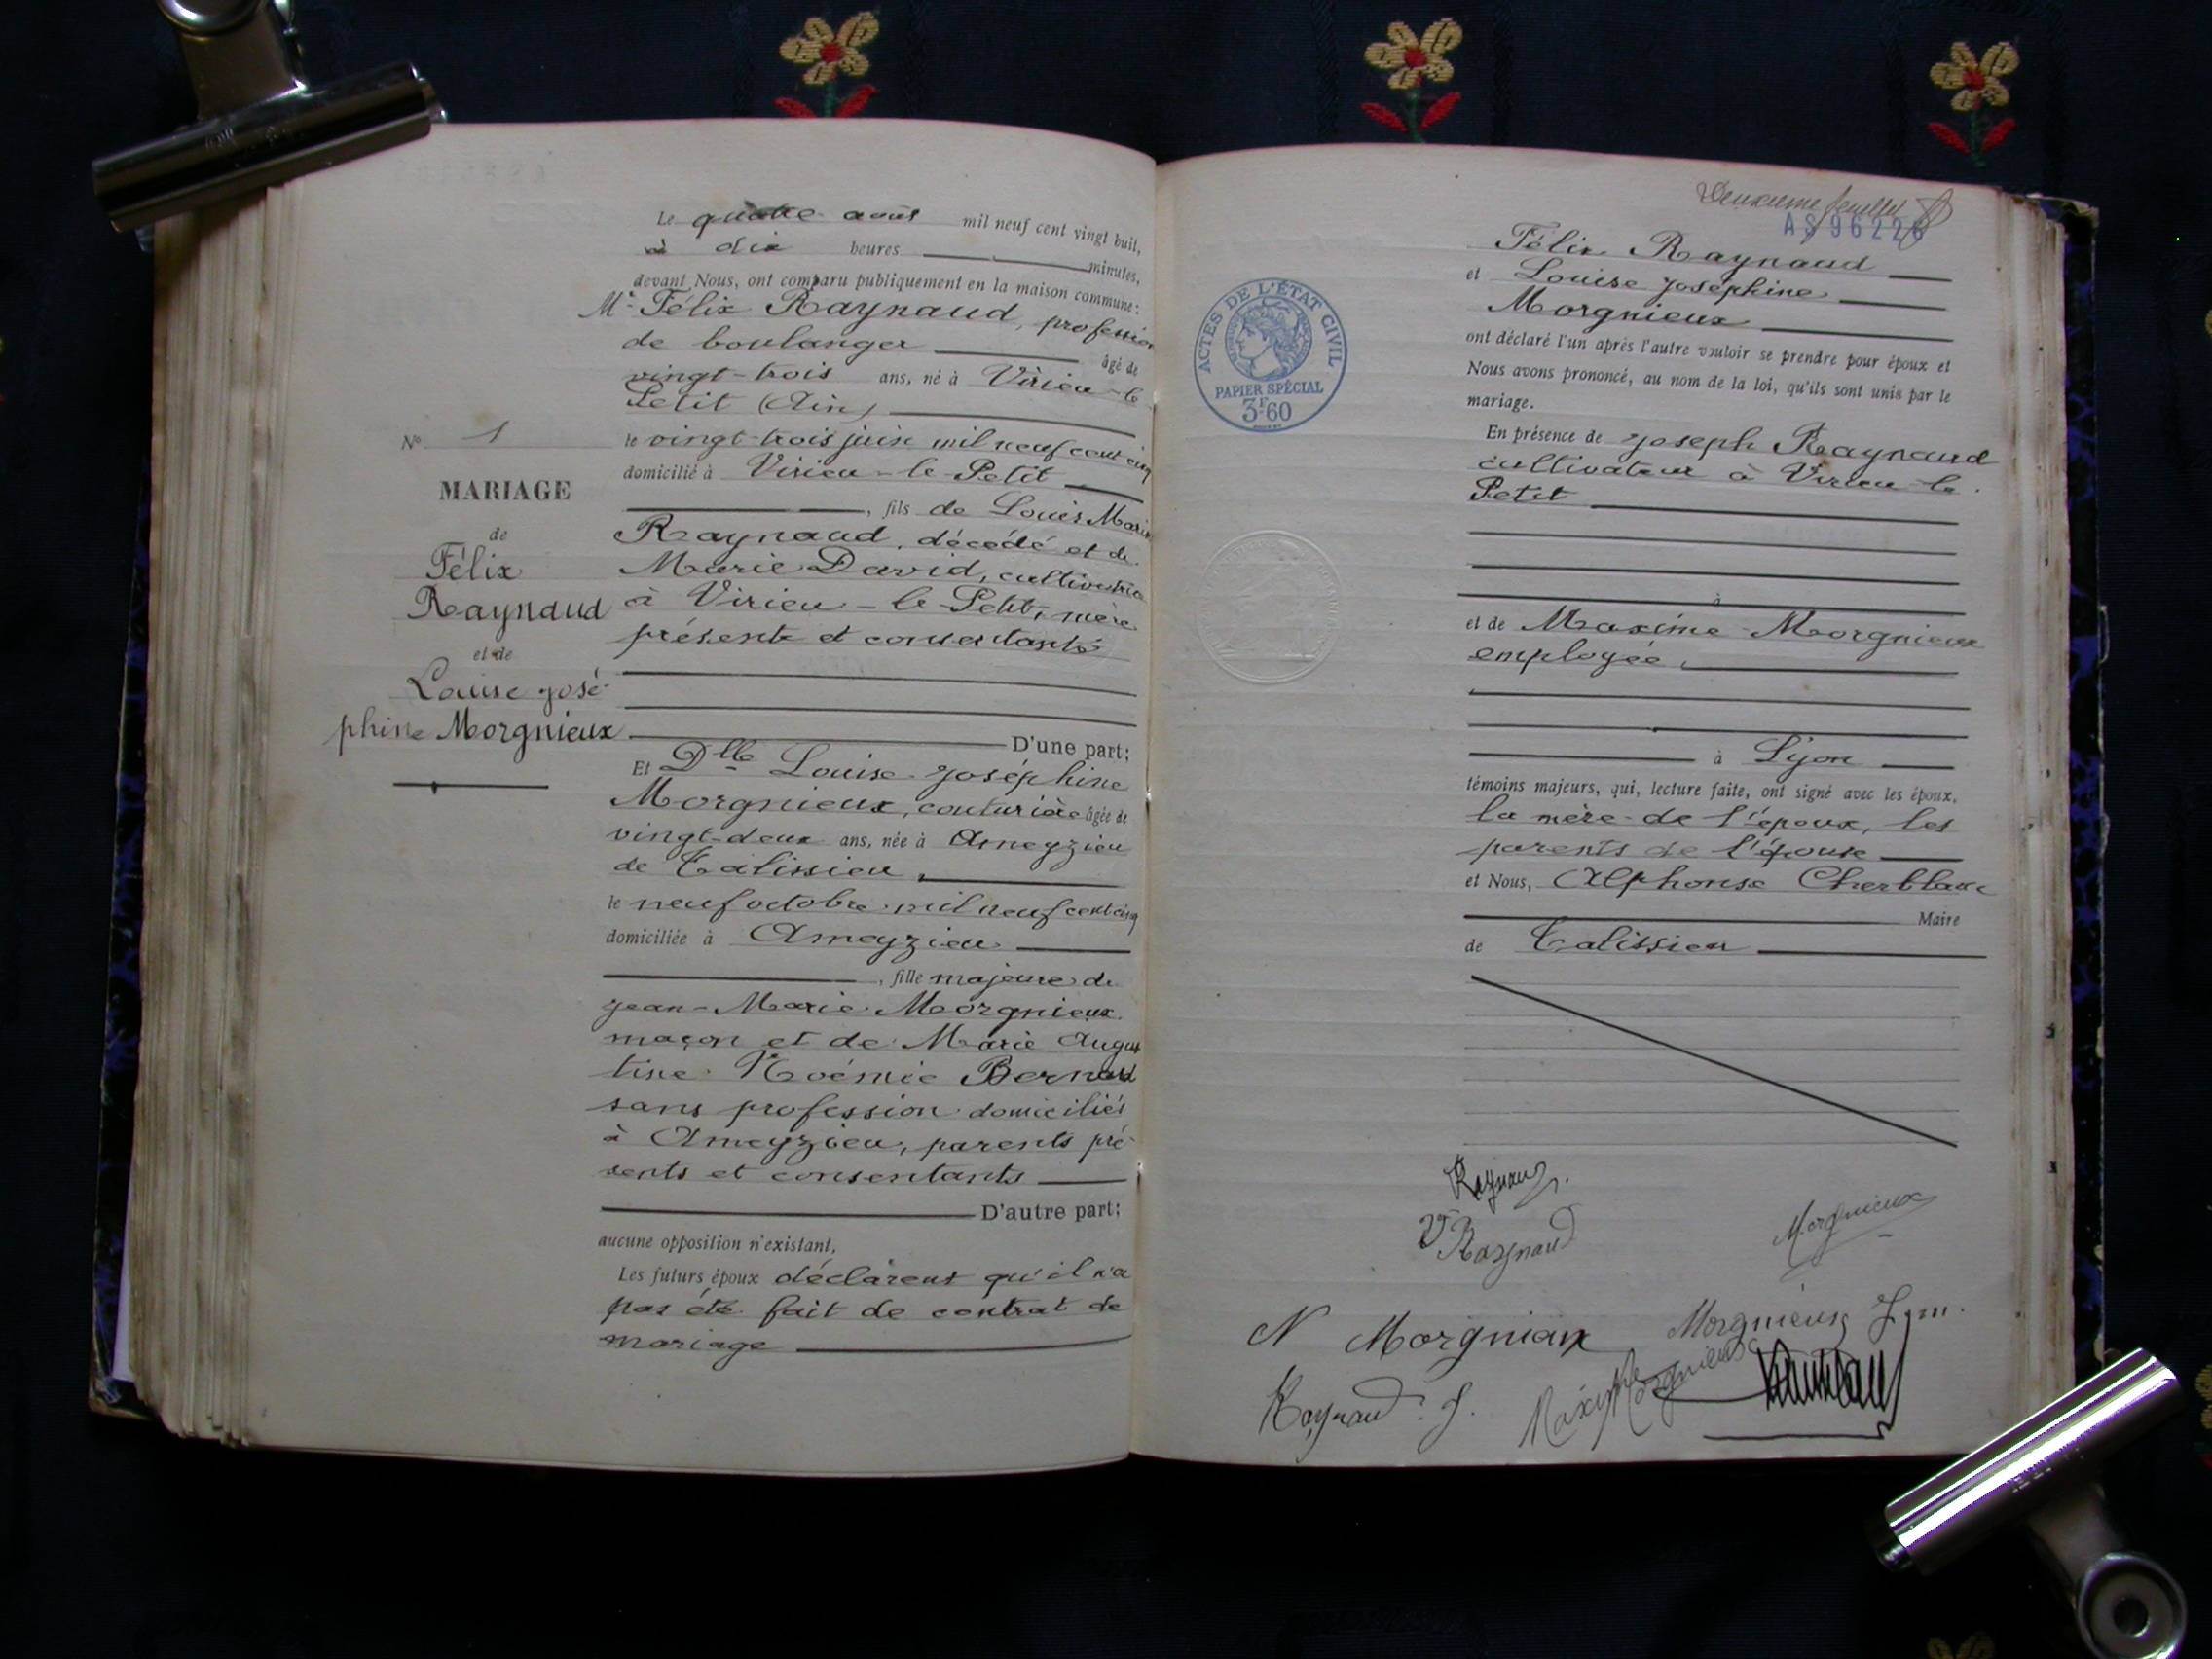 Le quatre août mil neuf cent vingt huit,
à dix heures minutes,
devant Nous, ont comparu publiquement en la maison commune:
Mr Félix Raynaud, profession
de boulanger âgé de
vingt-trois ans, né à Virieu-le
Petit (Ain)
le vingt-trois juin mil neuf cent cinq
domicilié à Virieu-le-Petit
, fils de Louis Marie
Raynaud, décédé et de
Marie David, cultivatrice
à Virieu-le-Petit, mère
présente et consentante
D'une part;
N° 1
MARIAGE
de
Félix
Raynaud
et de
Louise José-
phine Morgnieux
Et Dlle Louise Joséphine
Morgnieux, couturière âgée de
vingt-deux ans, née à Ameyzieu
de Talissieu,
le neuf octobre mil neuf cent cinq
domiciliée à Ameyzieu
, fille majeure de
Jean-Marie Morgnieux
maçon et de Marie Augus
tine Noémie Bernard
sans profession domiciliés
à Ameyzieu, parents pré-
sents et consentants
D'autre part;
aucune opposition n'existant,
Les futurs époux déclarent qu'il n'a
pas été fait de contrat de
mariage
Deuxième feuillet
AS96226
Félix Raynaud
et Louise Joséphine
Morgnieux
ont déclaré l'un après l'autre vouloir se prendre pour époux et
Nous avons prononcé, au nom de la loi, qu'ils sont unis par le
mariage.
ACTES DE L'ÉTAT CIVIL
PAPIER SPÉCIAL
3F60
En présence de Joseph Raynaud
cultivateur à Virieu-le
Petit
à
et de Maxime Morgnieux
employée,
à Lyon
témoins majeurs, qui, lecture faite, ont signé avec les époux,
la mère de l'époux, les
parents de l'épouse
et Nous, Alphonse Cherblanc
Maire
de Talissieu
Raynaud F.
Vve Raynaud
Morgnieux
N Morgnieux
Morgnieux J m.
Raynaud J.
Maxime Morgnieux